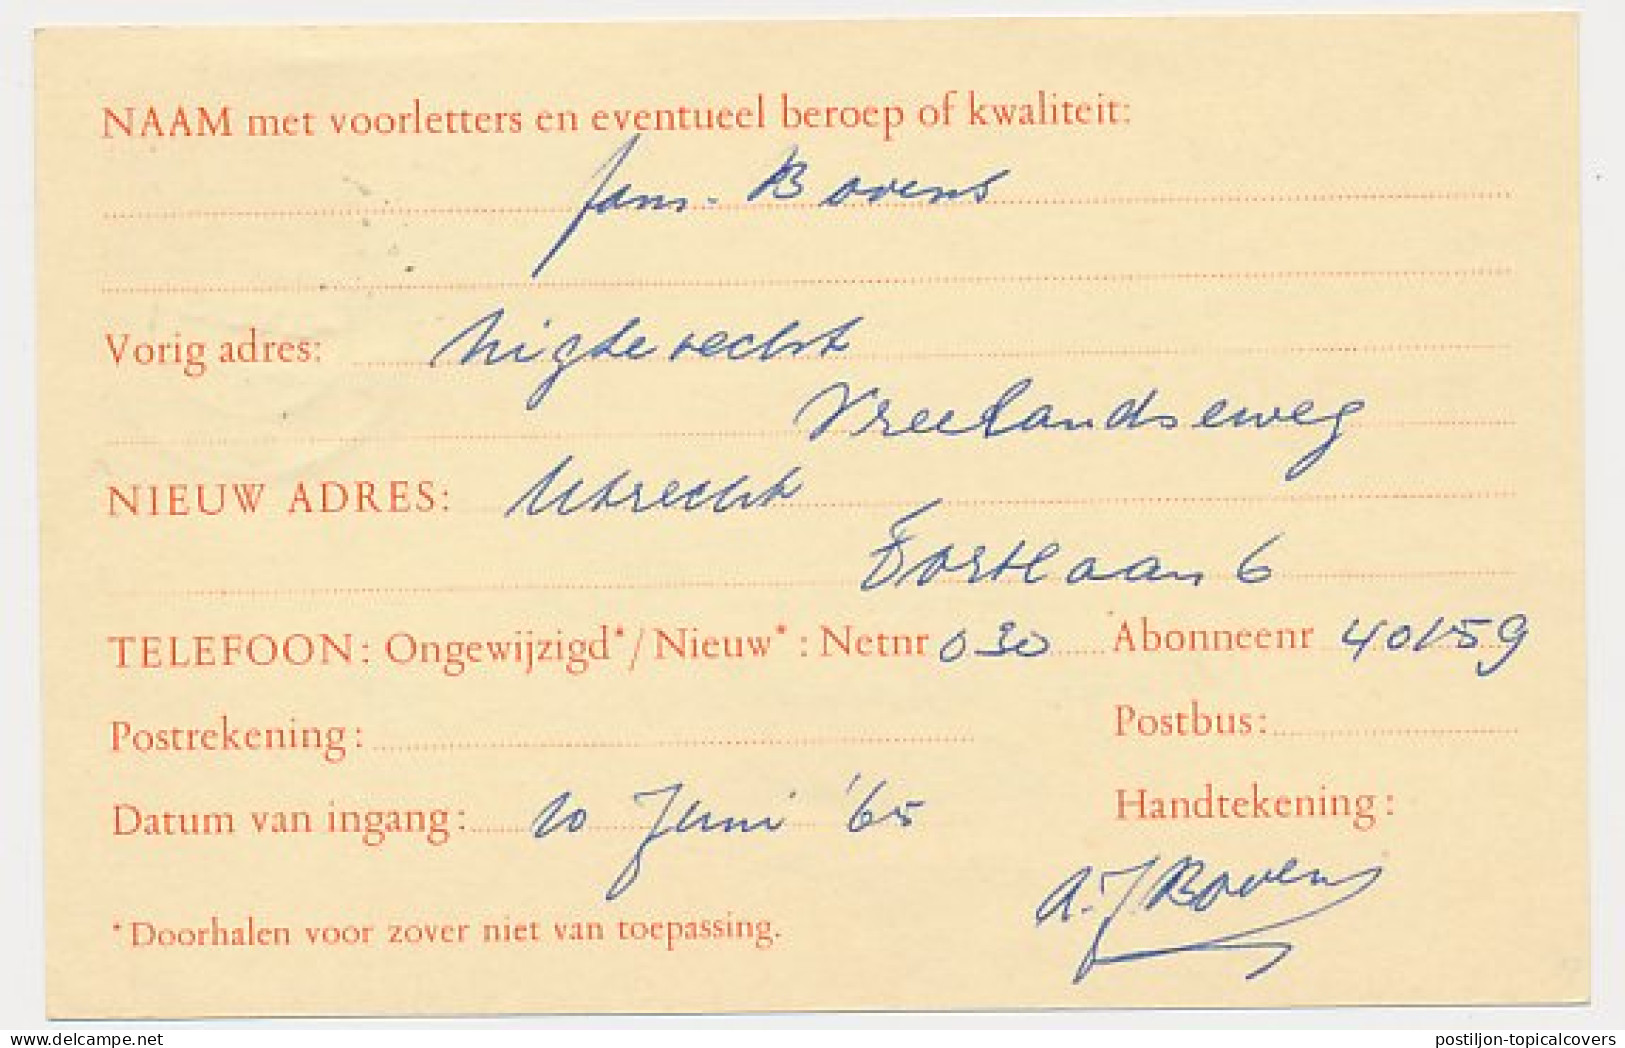 NAAM met voorletters en eventueel beroep of kwaliteit:
fam. Bovens
Vorig adres: Nigtevecht
Vreelandseweg
NIEUW ADRES: Utrecht
Fortlaan 6
TELEFOON: Ongewijzigd*/Nieuw*: Netnr 030 Abonneenr 40159
Postrekening: Postbus:
Datum van ingang: 10 Juni '65 Handtekening:
A.J. Bovens
*Doorhalen voor zover niet van toepassing.
postiljon-topicalcovers
delcampe.net